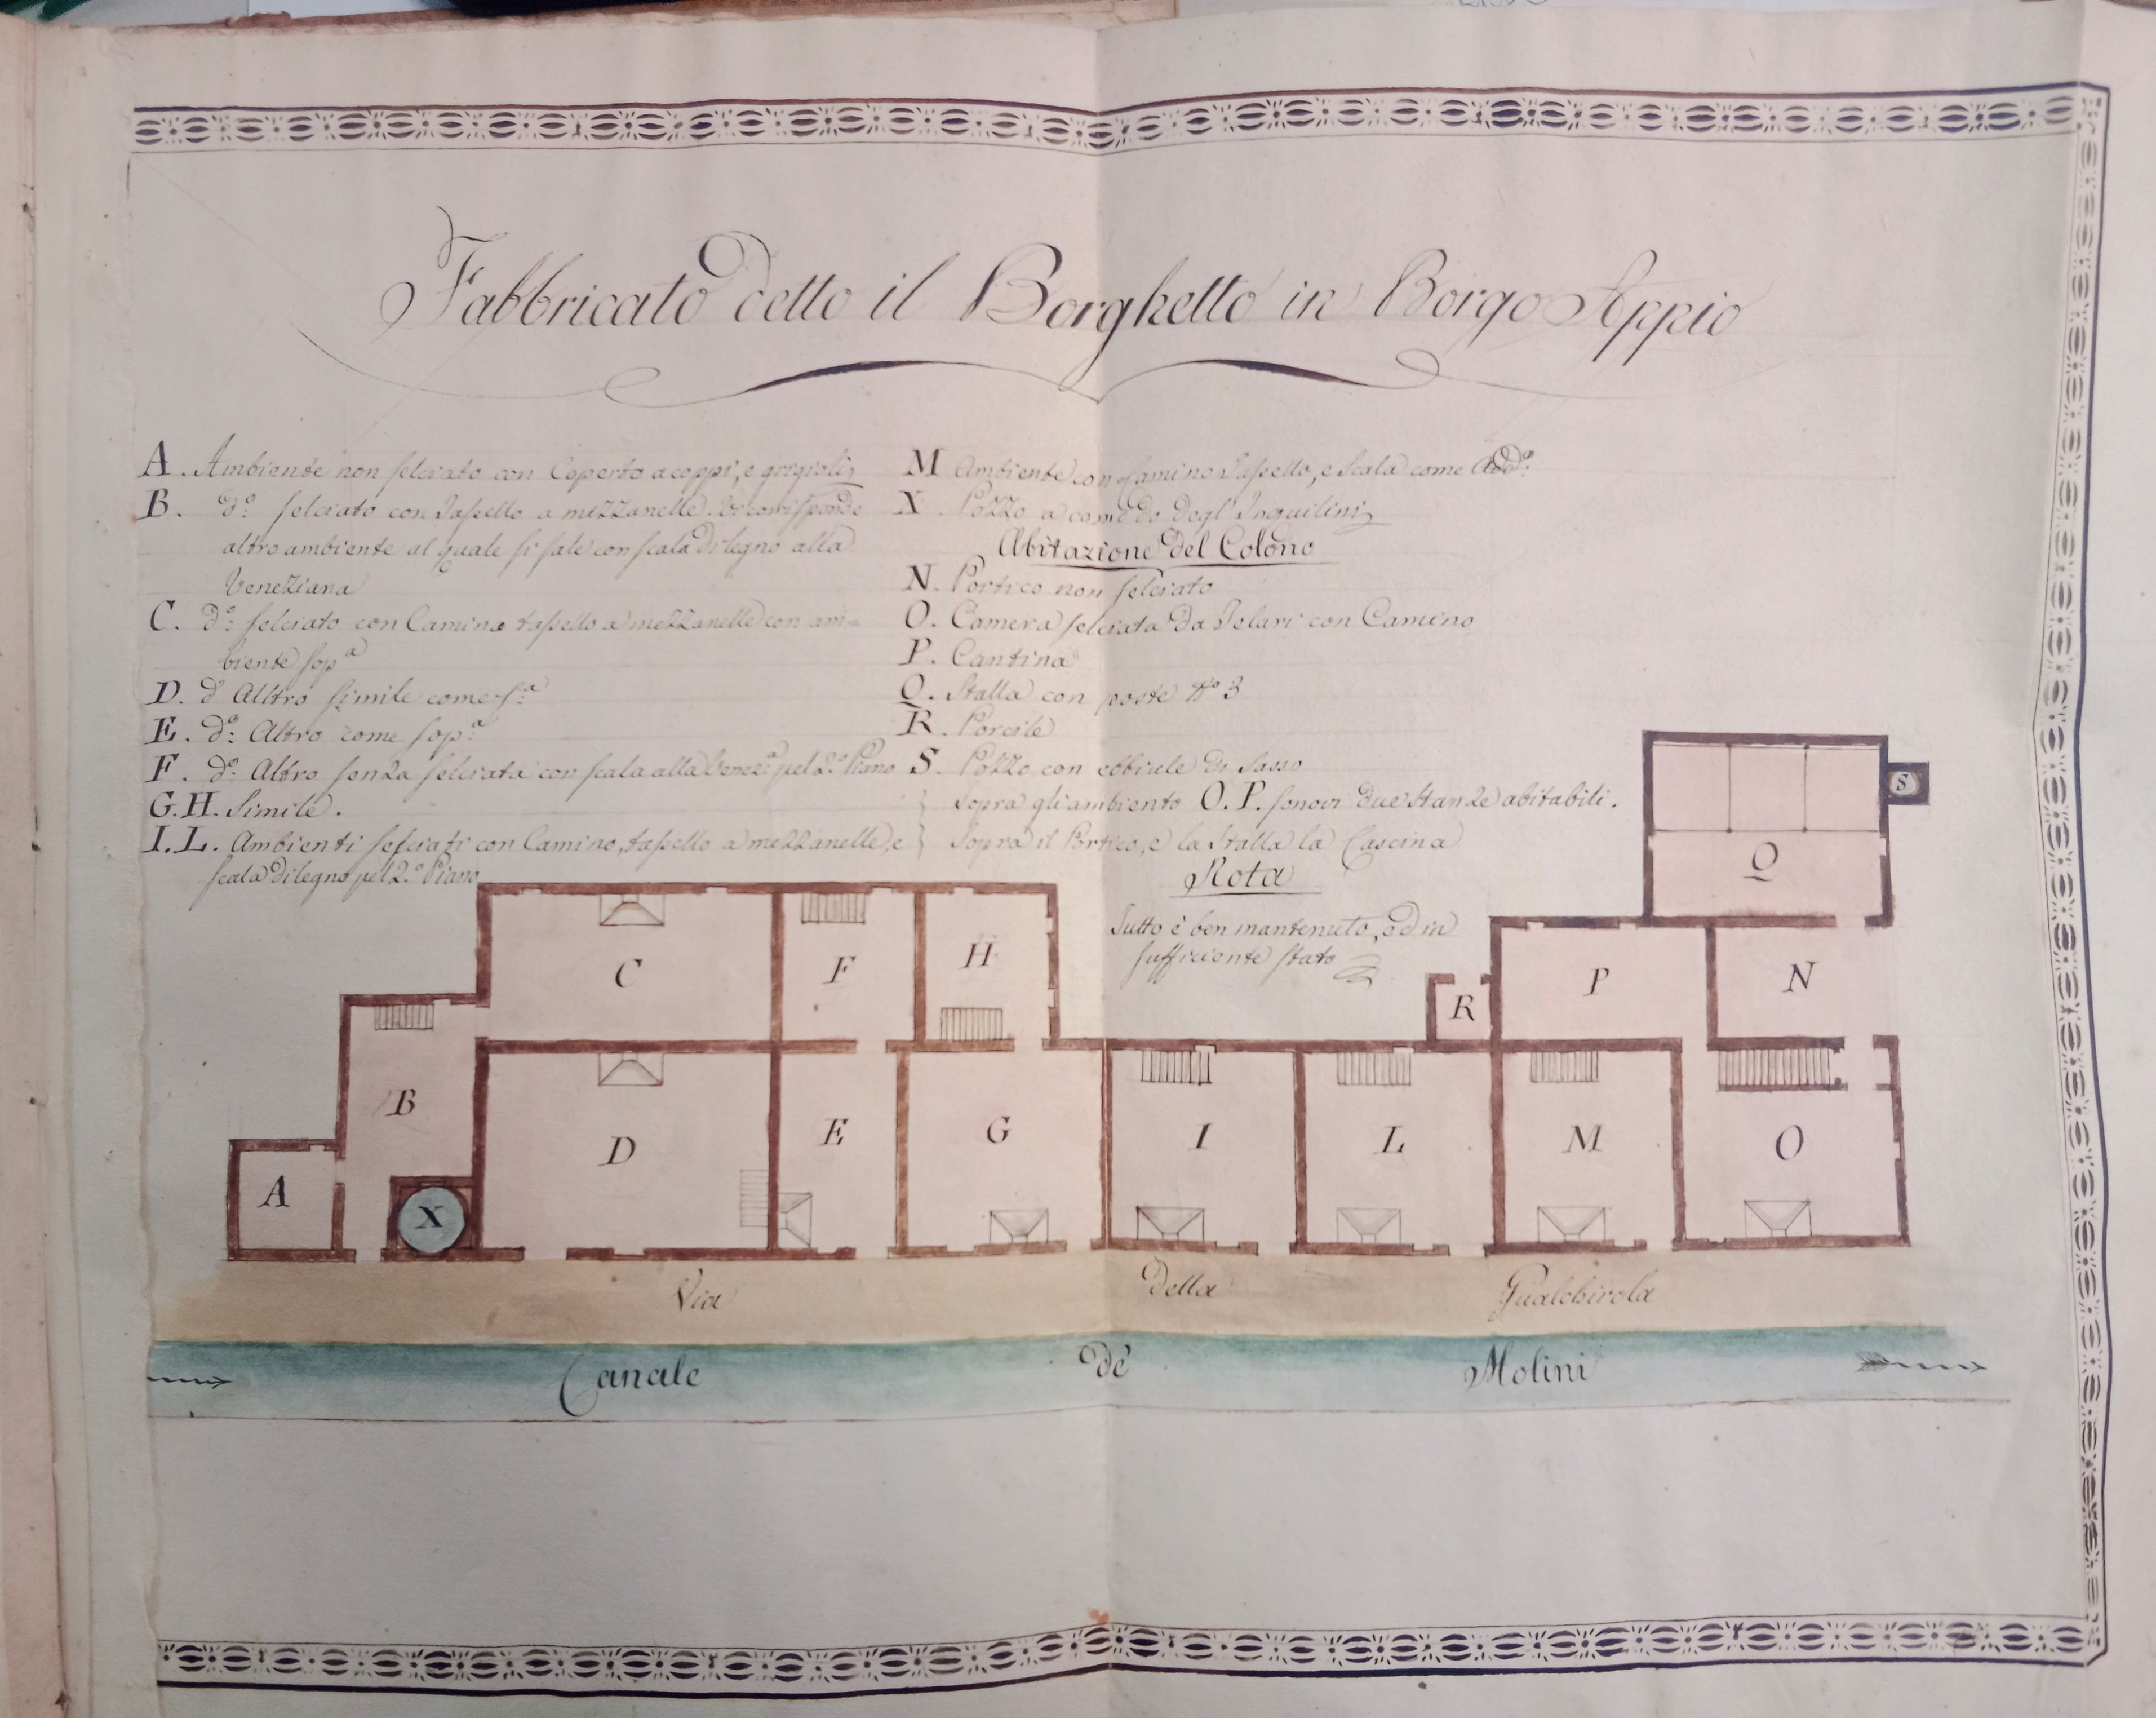 Fabbricato detto il Borghetto in Borgo Appio
A. Ambiente non selciato con Coperto a coppi, e grigioli
B. d.º selciato con Tassello a mezzanelle. Vi corrisponde
altro ambiente al quale si sale con scala di legno alla
Veneziana
C. d.º selciato con Camino tassello a mezzanelle con am=
biente sop.ª
D. d.º Alltro simile come s.ª
E. d.º Altro come sop.ª
F. d.º Altro senza selciata con scala alla Venez.ª pel 2.º Piano
G.H. Simile.
I.L. Ambienti selciati con Camino, tassello a mezzanelle, e
scala di legno pel 2.º Piano
M Ambiente con Camino Tassello, e Scala come
X. Pozzo a comodo degl'Inquilini
Abitazione del Colono
N. Portico non selciato
O. Camera selciata da Telari con Camino
P. Cantina
Q. Stalla con poste Nº 3
R. Porcile
S. Pozzo con di Sasso
Sopra gli ambiento O.P. sonovi due Stanze abitabili.
Sopra il Portico, e la Stalla la Cascina
Nota
Tutto è ben mantenuto, ed in
sufficiente stato
S
Q
C
F
H
R
P
N
B
D
E
G
I
L
M
O
A
X
Via della Gualchirola
Canale de' Molini